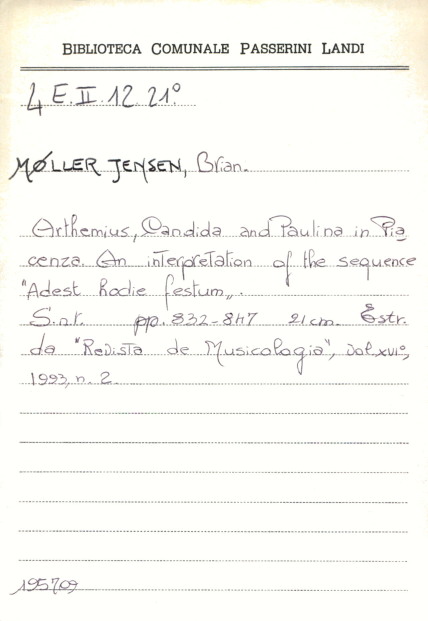 BIBLIOTECA COMUNALE PASSERINI LANDI
4 E. II. 12. 21°
MØLLER JENSEN, Brian.
Arthemius, Candida and Paulina in Pia
cenza. An interpretation of the sequence
"Adest hodie festum„.
S.n.t. pp. 832-847 21 cm. Estr.
da "Revista de Musicologia", vol. XVI°,
1993, n. 2.
195709